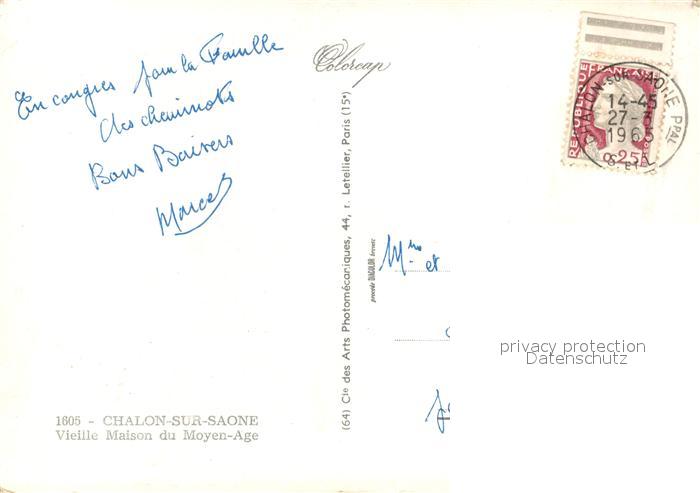 En congrès pour la Famille
des cheminots
Bons Baisers
Marcel
Colorcap
REPUBLIQUE FRANÇAISE
CHALON-SUR-SAONE PPAL
14-45
27-3
1965
S-ET-L
0.25F
(64) Cie des Arts Photomécaniques, 44, r. Letellier, Paris (15e)
procédé DIACOLOR breveté
Mme et
privacy protection
Datenschutz
1605 - CHALON-SUR-SAONE
Vieille Maison du Moyen-Age